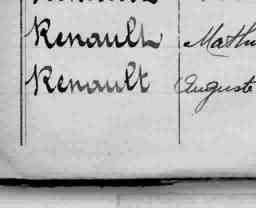 Renault Math
Renault Auguste